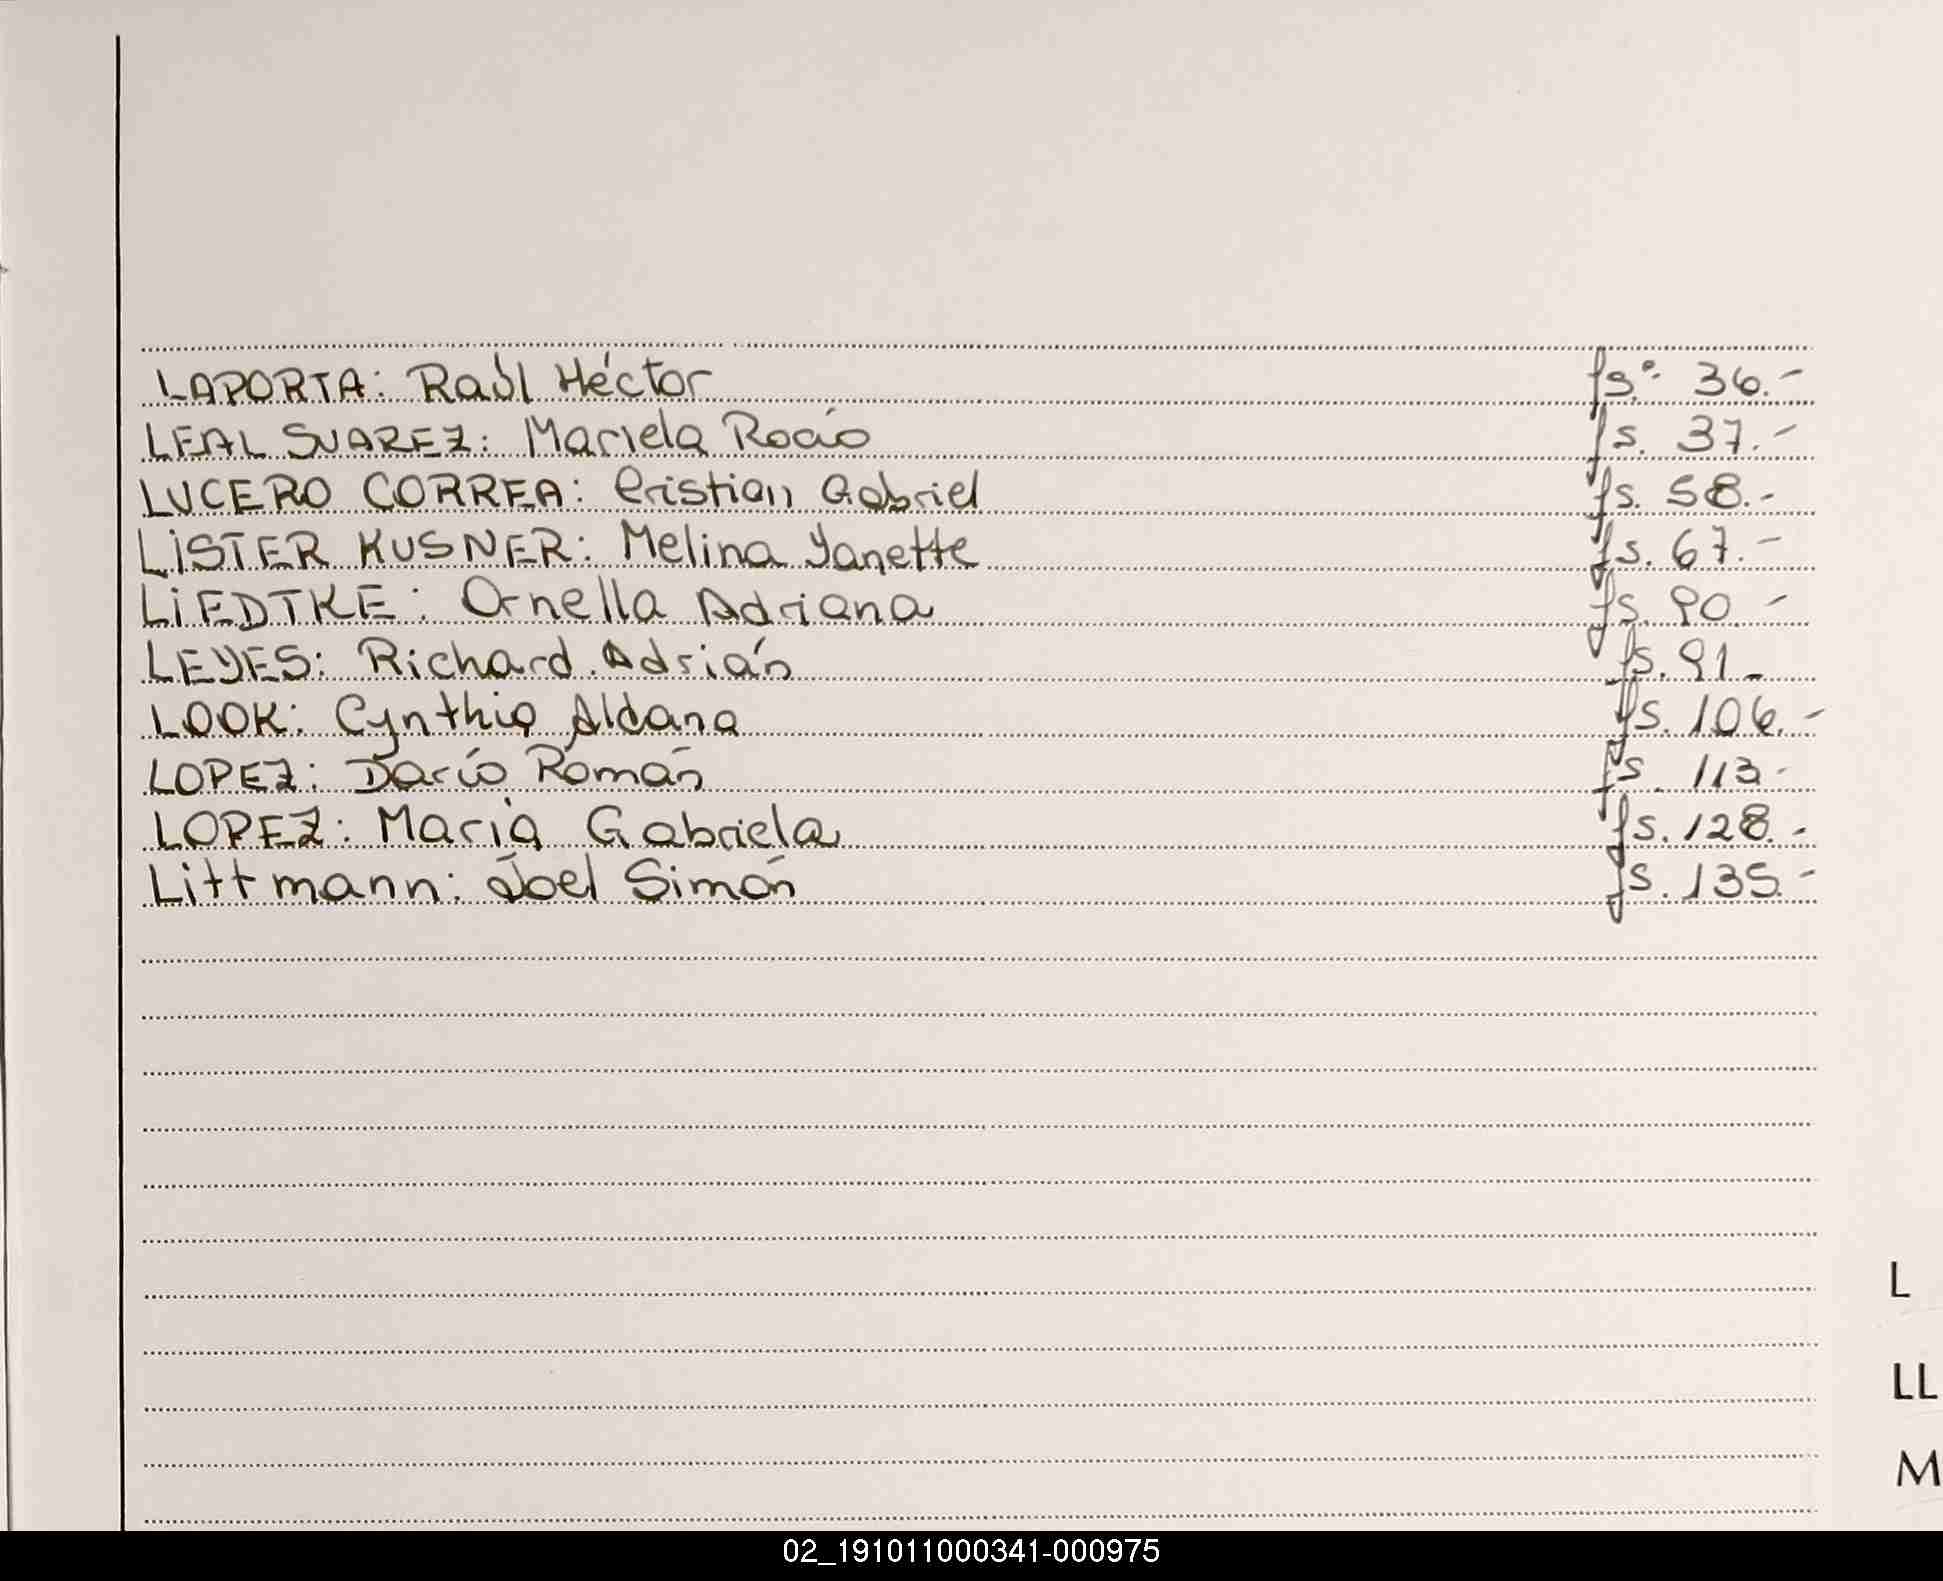 LAPORTA: Raúl Héctor fs. 36.-
LEAL SUAREZ: Mariela Rocío fs. 37.-
LUCERO CORREA: Cristian Gabriel fs. 58.-
LISTER KUSNER: Melina Yanette fs. 67.-
LIEDTKE: Ornella Adriana fs. 90.-
LEYES: Richard Adrián fs. 91.-
LOOK: Cynthia Aldana fs. 106.-
LOPEZ: Darío Román fs. 113.-
LOPEZ: María Gabriela fs. 128.-
Littmann: Joel Simón fs. 135.-
L
LL
M
02_191011000341-000975